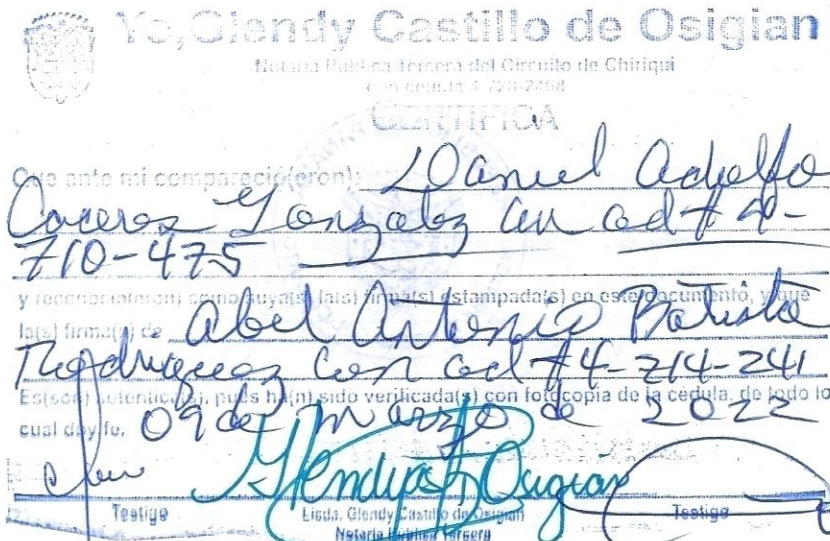 Yo, Glendy Castillo de Osigian
Notaria Pública Tercera del Circuito de Chiriquí
con cédula 4-728-2468
CERTIFICA
Que ante mí compareció(eron) Daniel Adolfo
Caceres Gonzalez con ced # 4-
710-475
y reconoció(eron) como suya(s) la(s) firma(s) estampada(s) en este documento, y que
la(s) firma(s) de Abel Antonio Batista
Rodriguez con ced #4-714-241
Es(son) autentica(s), pues ha(n) sido verificada(s) con fotocopia de la cédula, de todo lo
cual doy fe. 09 de marzo de 2022
Glendy Osigian
Testigo Licda. Glendy Castillo de Osigian Testigo
Notaria Pública Tercera